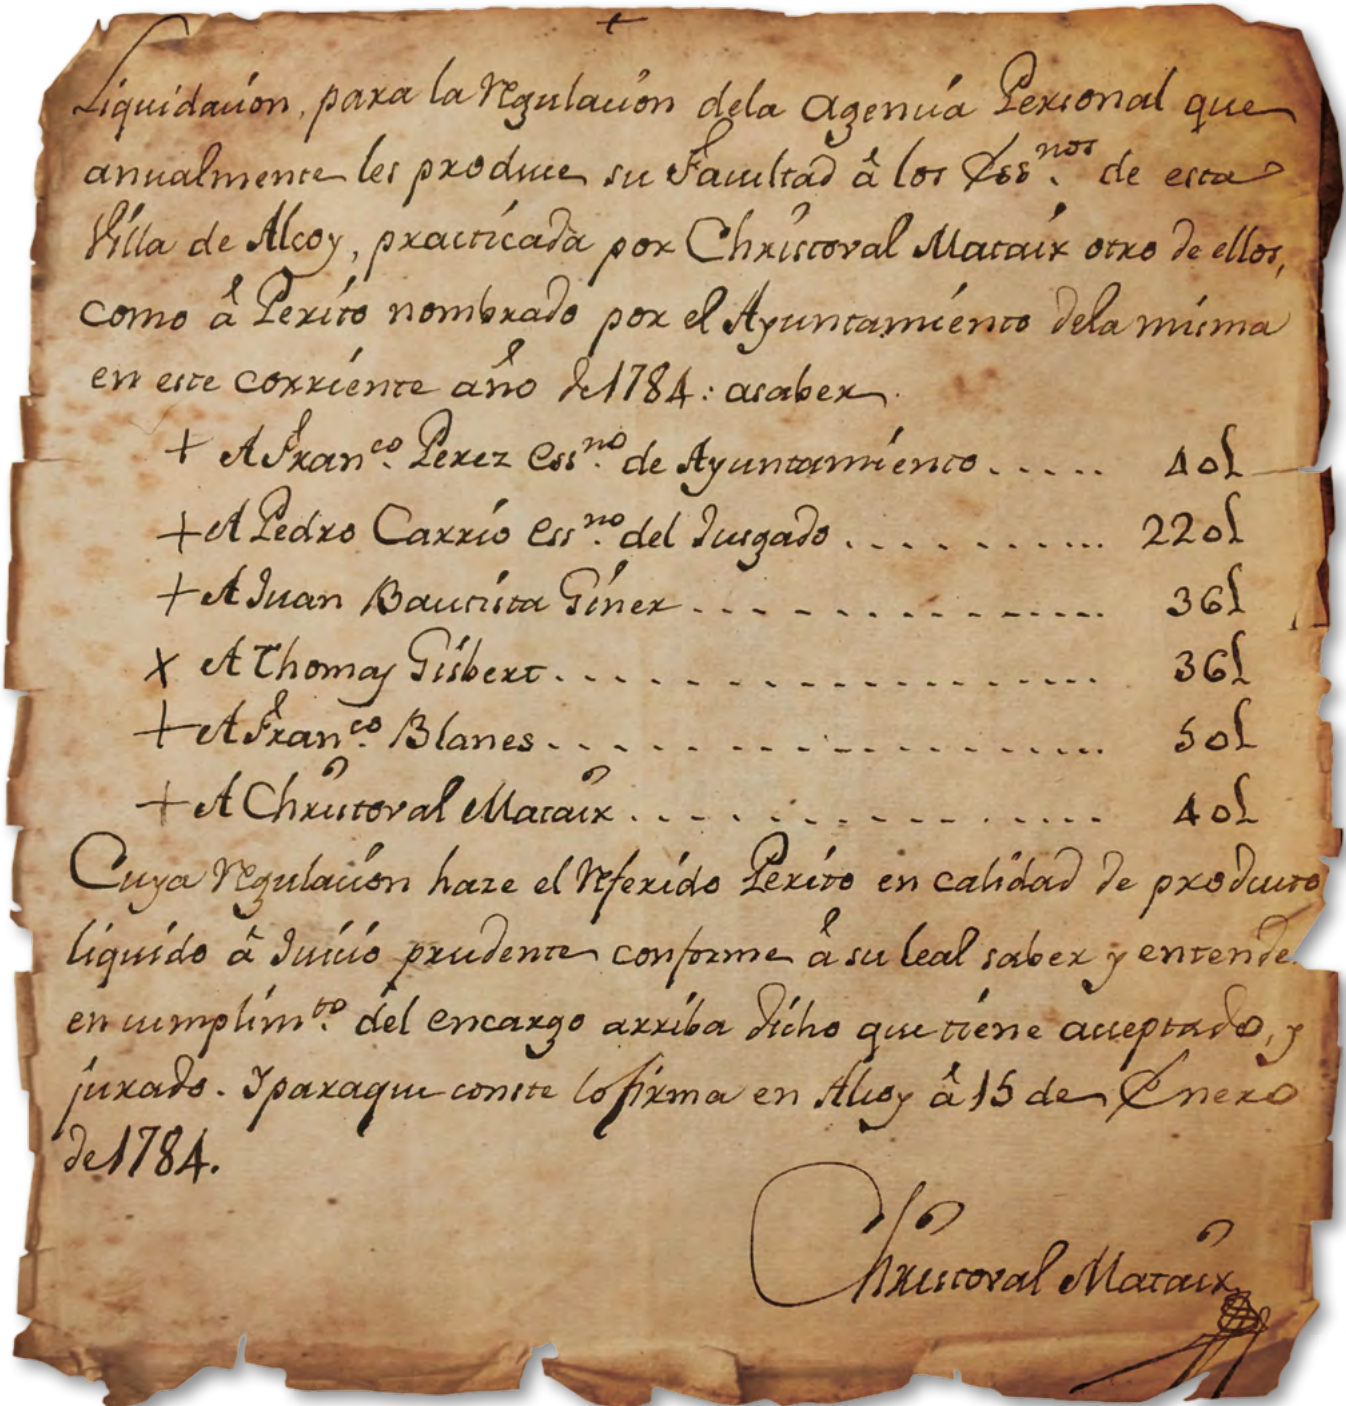 +
Liquidacion, para la regulacion dela Agencia Personal que
anualmente les produce su Facultad â los Ess.nos de esta
Villa de Alcoy, practicada por Christoval Mataix otro de ellos,
como â Perito nombrado por el Ayuntamiento dela misma
en este corriente año de 1784: asaber.
+ A Fran.co Perez Ess.no de Ayuntamiento..... 40£
+ A Pedro Carrio Ess.no del Jusgado........... 220£
+ A Juan Bautista Giner............... 36£
x A Thomas Gisbert.................. 36£
+ A Fran.co Blanes................. 50£
+ A Christoval Mataix............... 40£
Cuya regulacion haze el referido Perito en calidad de producto
liquido â Juicio prudente conforme â su leal saber y entende
en cumplim.to del encargo arriba dicho que tiene acceptado, y
jurado. Y paraque conste lo firma en Alcoy â 15 de Enero
de 1784.
Christoval Mataix